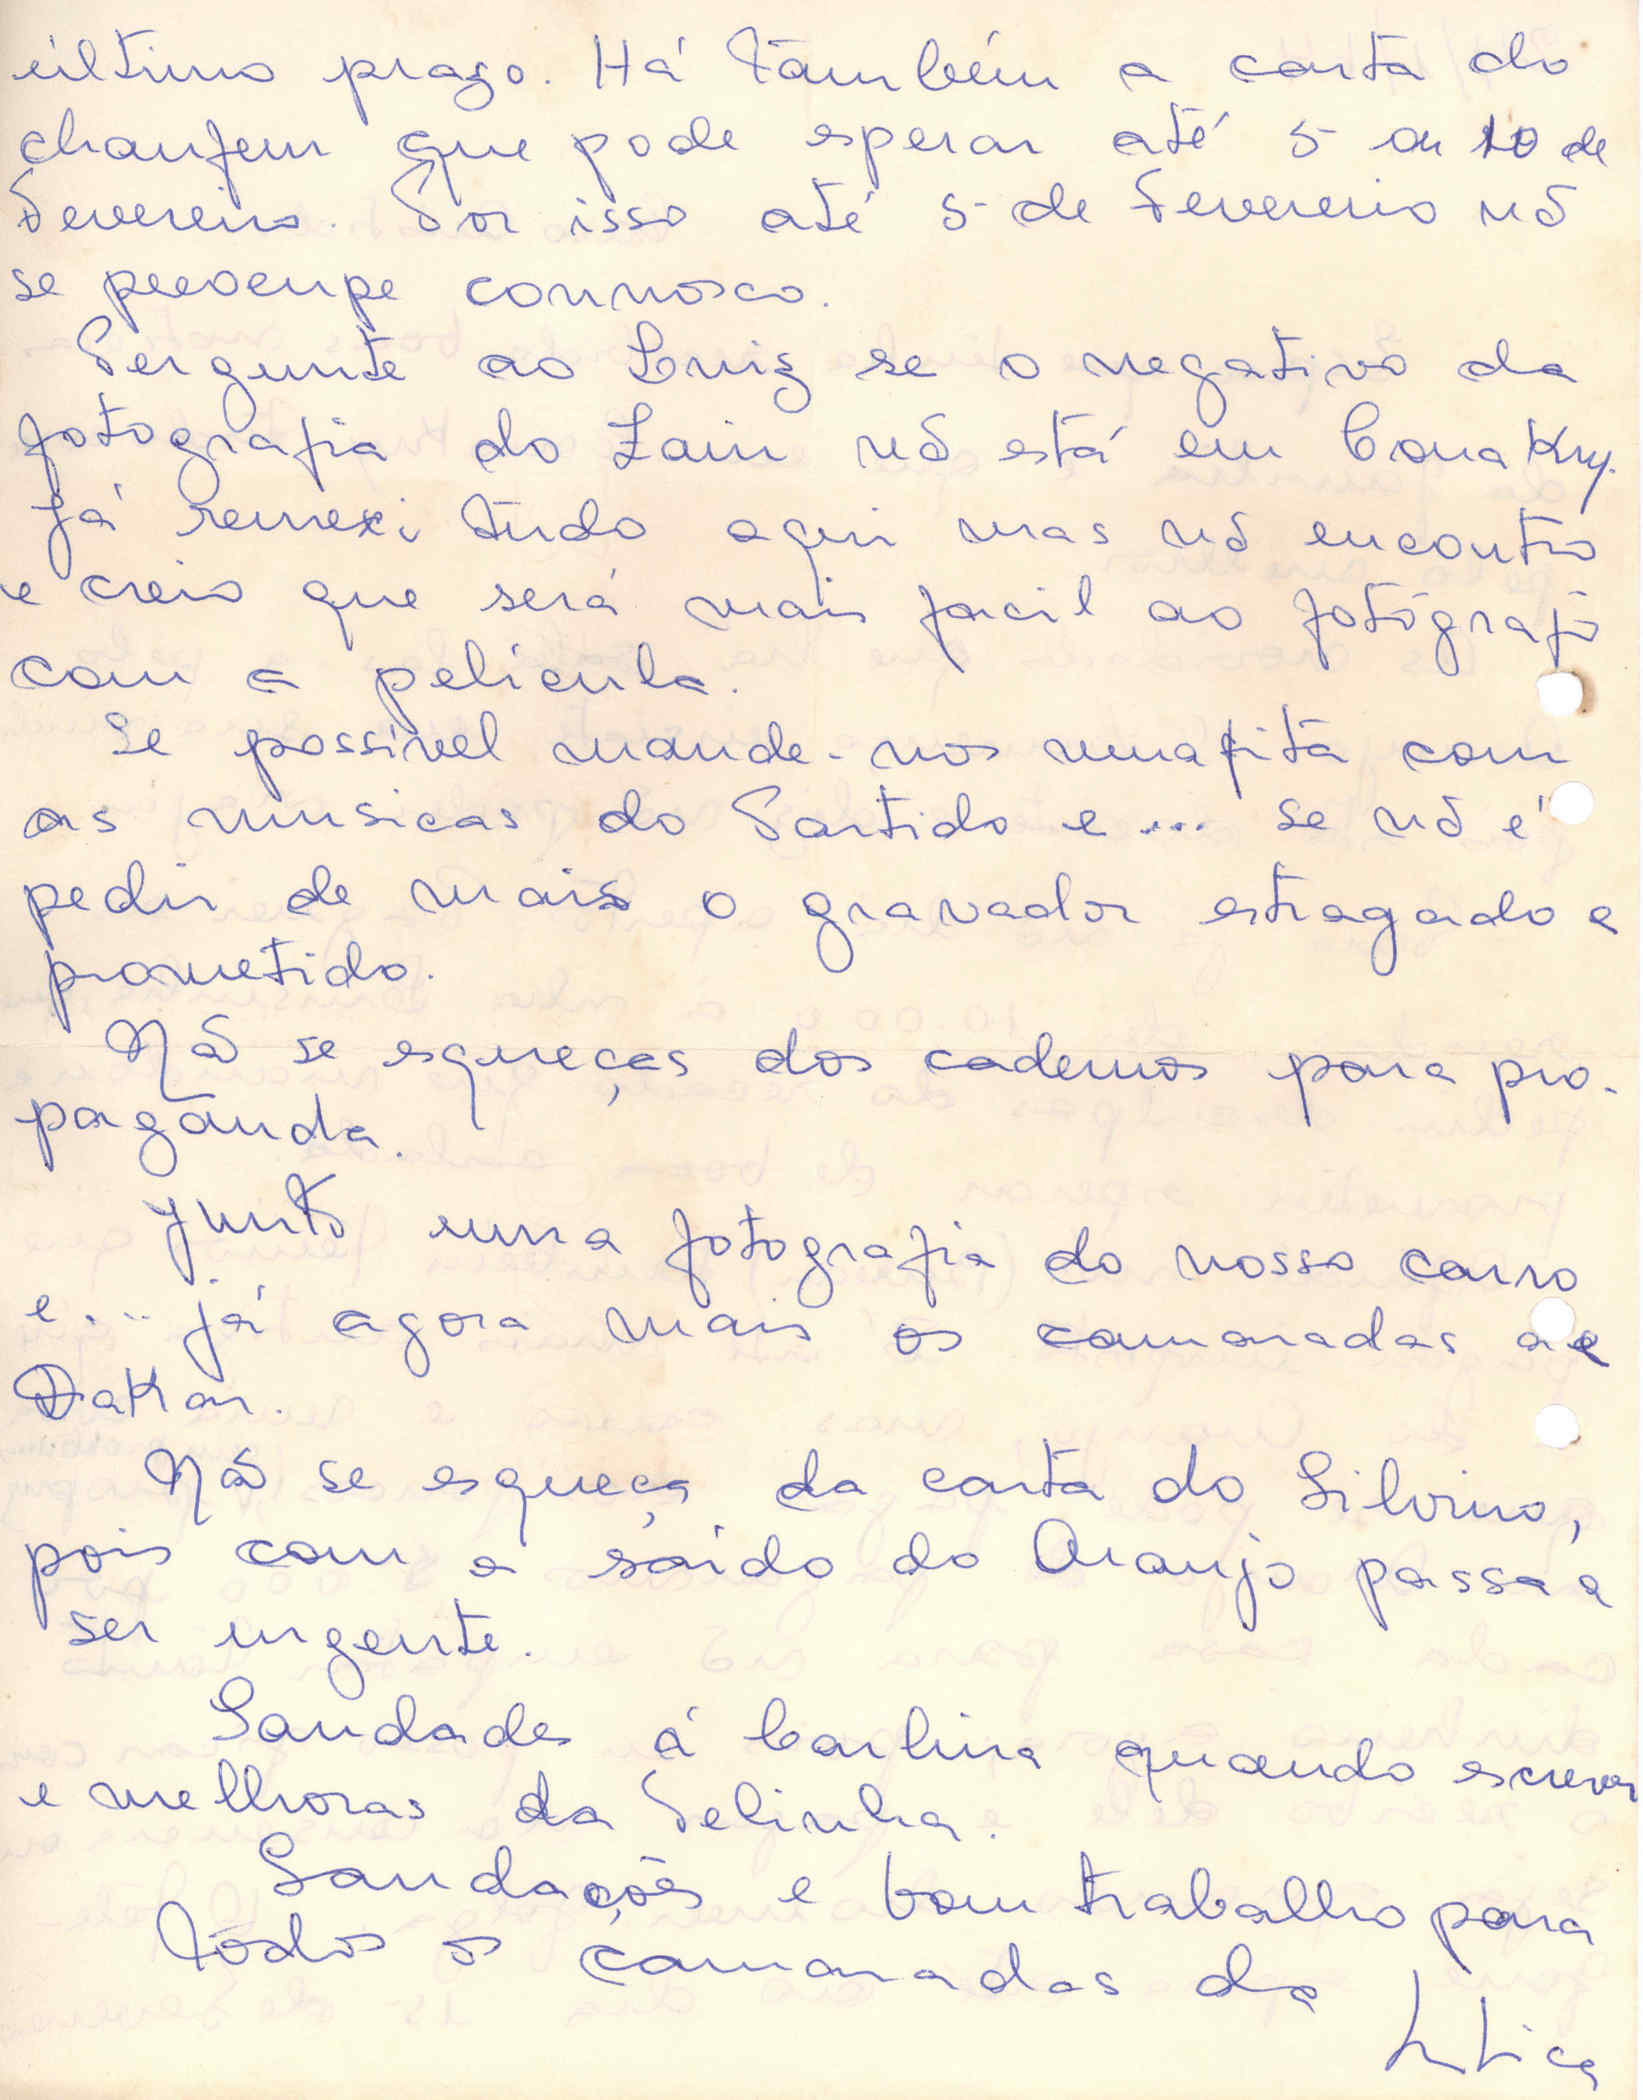 último prazo. Há também a carta do
chaufeur que pode esperar até 5 ou 10 de
Fevereiro. Por isso até 5 de Fevereiro nõ
se preocupe connosco.
Pergunte ao Luiz se o negativo da
fotografia do Lain nõ está em Conakry.
Já remexi tudo aqui mas nõ encontro
e creio que será mais facil ao fotógrafo
com a pelicula.
Se possível mande-nos uma fita com
as musicas do Partido e ... se nõ é
pedir de mais o gravador estragado e
prometido.
Nõ se esqueças dos cadernos para pro-
paganda.
Junto uma fotografia do nosso carro
e ... já agora mais os camaradas de
Dakar.
Nõ se esqueça da carta do Silvino,
pois com a saído do Araujo passa a
ser urgente.
Saudades á Carlina quando escrever
e melhoras da Felinha.
Saudações e bom trabalho para
todos os camaradas da